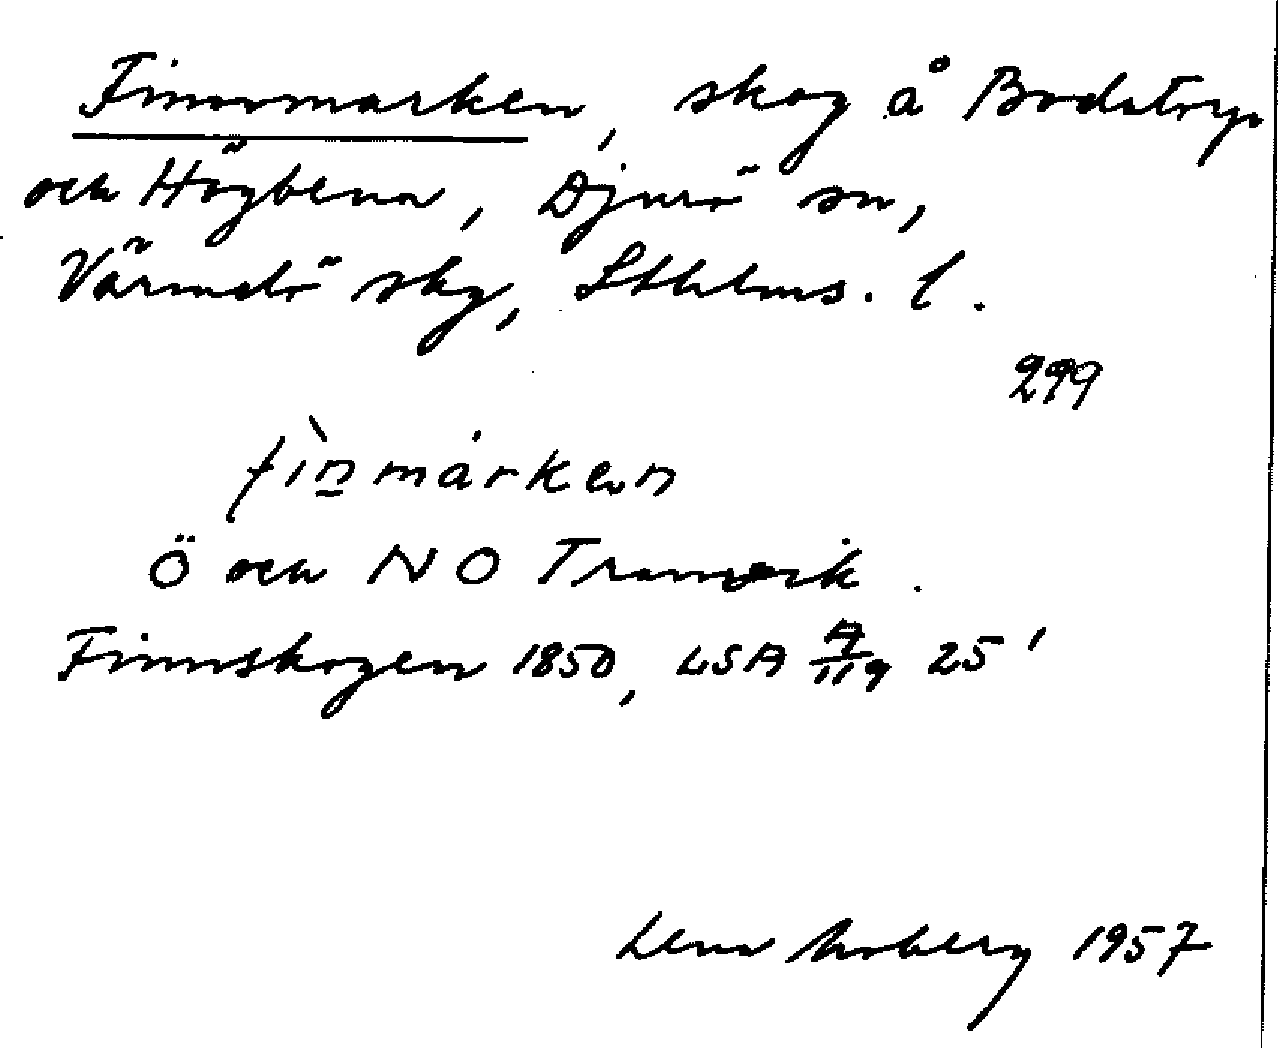 Finnmarken, skog å Bodstryp
och Högbena, Djurö sn,
Värmdö skg, Sthlms. l.
299
fìn̲márken
Ö och NO Tranvik.
Finnskogen 1850, LSA A/119 25¹
Lena Moberg 1957